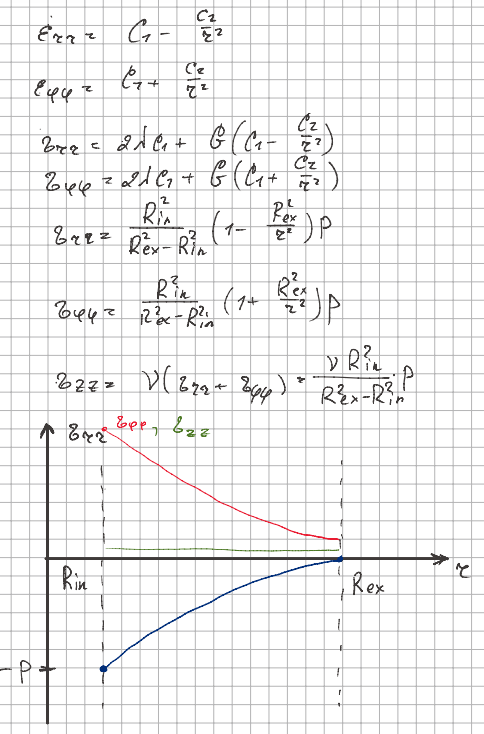 ε_rr = C_1 - C_2/r²
ε_φφ = C_1 + C_2/r²
σ_rr = 2λC_1 + G(C_1 - C_2/r²)
σ_φφ = 2λC_1 + G(C_1 + C_2/r²)
σ_rr = R_in²/(R_ex² - R_in²) (1 - R_ex²/r²) P
σ_φφ = R_in²/(R_ex² - R_in²) (1 + R_ex²/r²) P
σ_zz = ν(σ_rr + σ_φφ) = ν R_in²/(R_ex² - R_in²) · P
σ_rr, σ_φφ, σ_zz
R_in R_ex r
-P